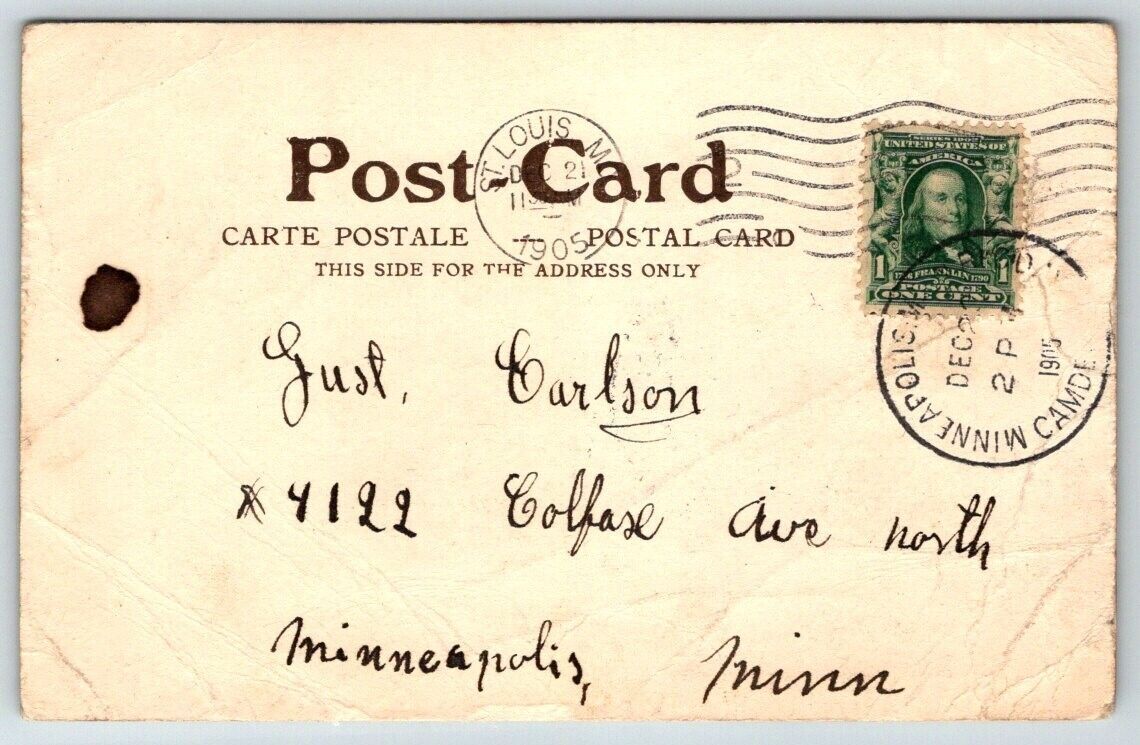 Post-Card
CARTE POSTALE POSTAL CARD
THIS SIDE FOR THE ADDRESS ONLY
ST. LOUIS, M
DEC 21
11
1905
2
SERIES 1902
UNITED STATES OF
AMERICA
1 1706 FRANKLIN 1790 1
POSTAGE
ONE CENT
MINNEAPOLIS, MINN CAMDE
DEC
2 P
1905
Gust. Carlson
4122 Colfax Ave north
Minneapolis, Minn